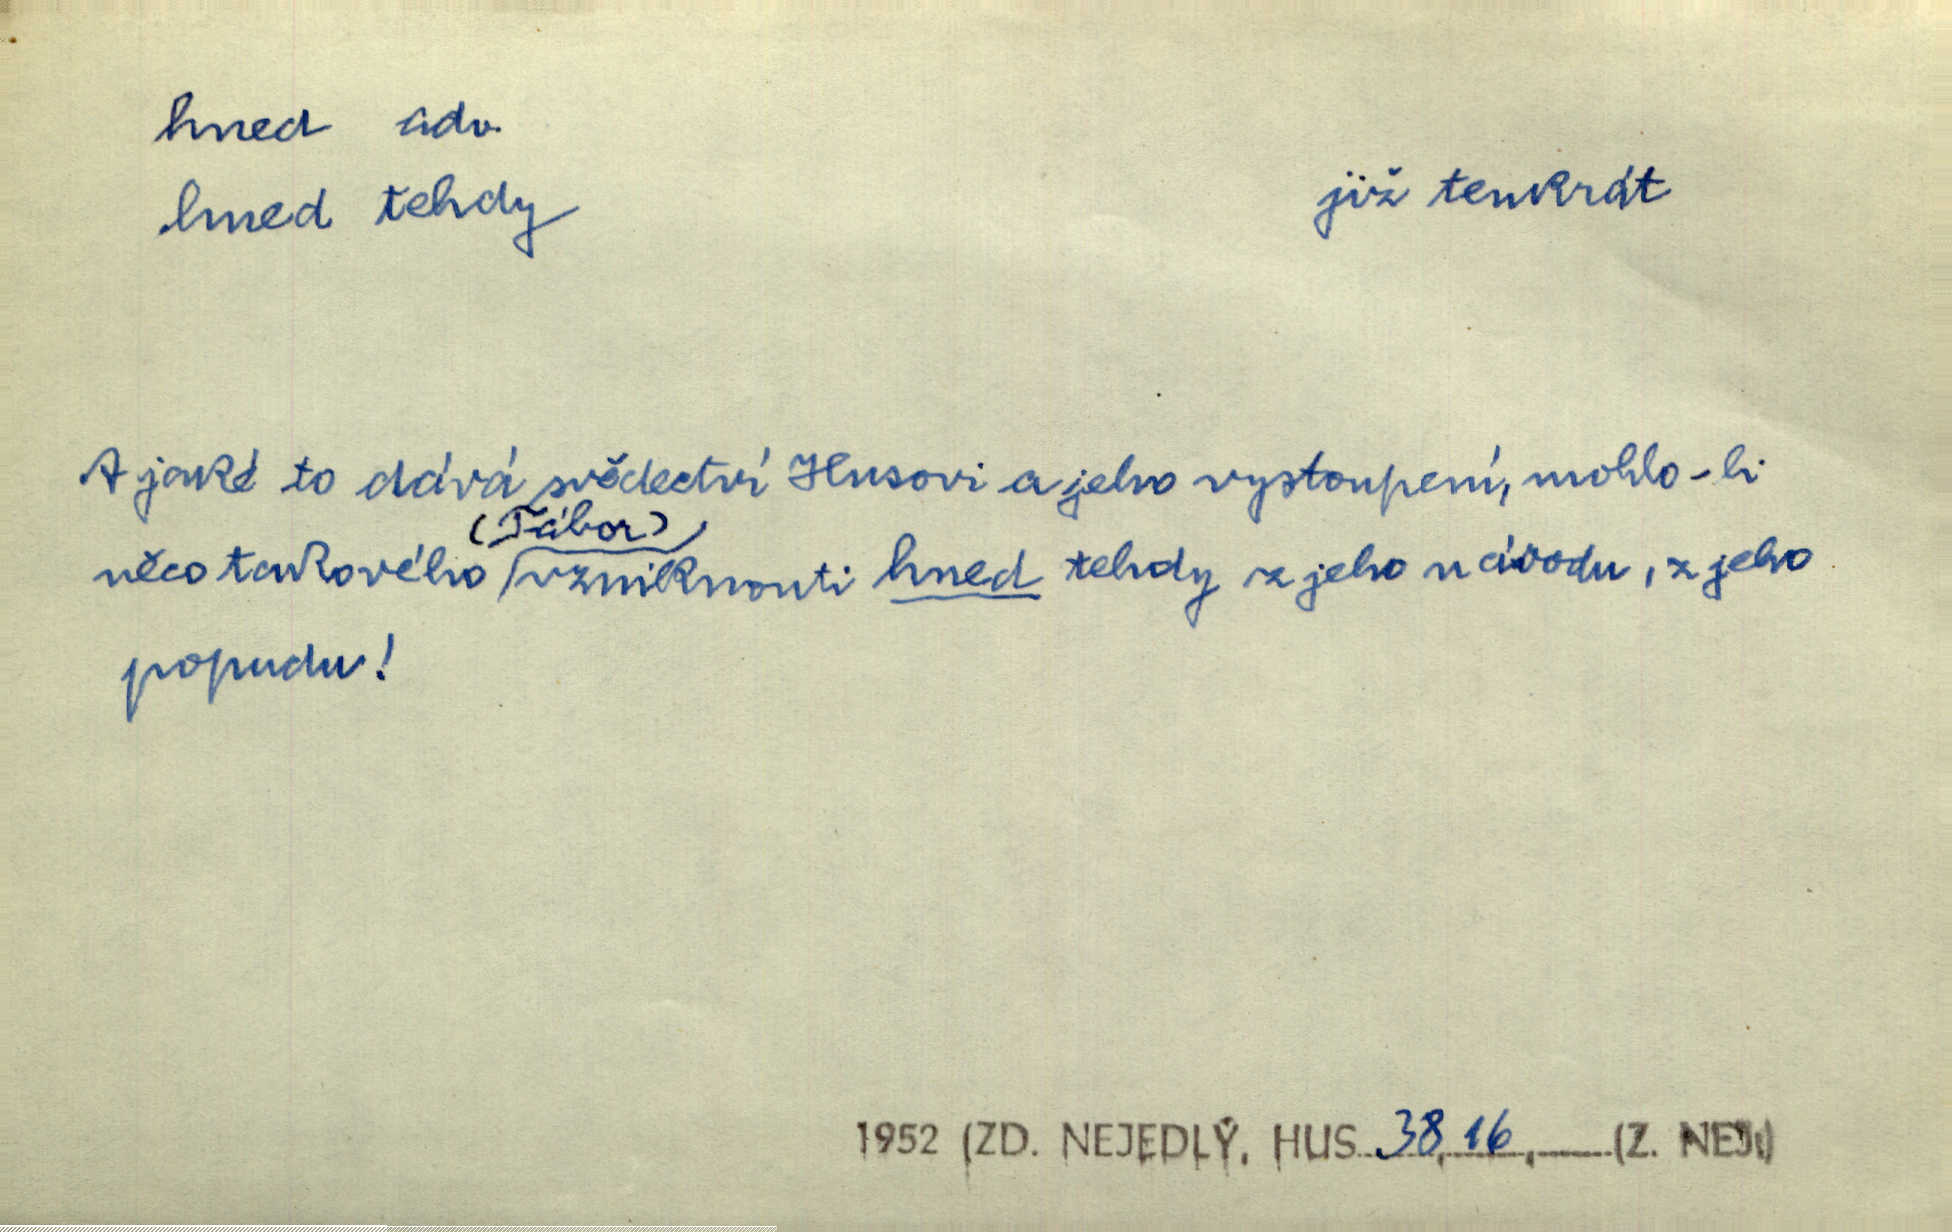 hned adv.
hned tehdy
již tenkrát
A jaké to dává svědectví Husovi a jeho vystoupení, mohlo-li
(Tábor)
něco takového vzniknouti hned tehdy z jeho návodu, z jeho
popudu!
1952 (ZD. NEJEDLÝ, HUS 38, 16, (Z. NEJ.)